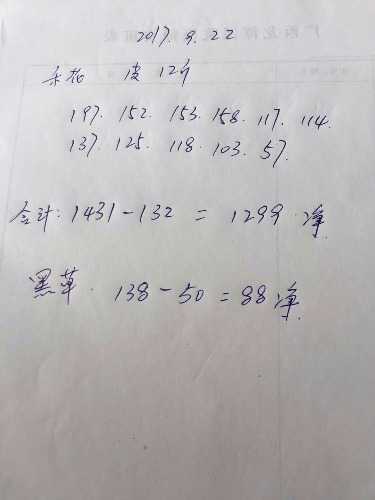 2017. 9. 22
花 皮 12斤
197. 152. 153. 158. 117. 114.
137. 125. 118. 103. 57.
合计: 1431-132 = 1299 净
黑草. 138-50=88净